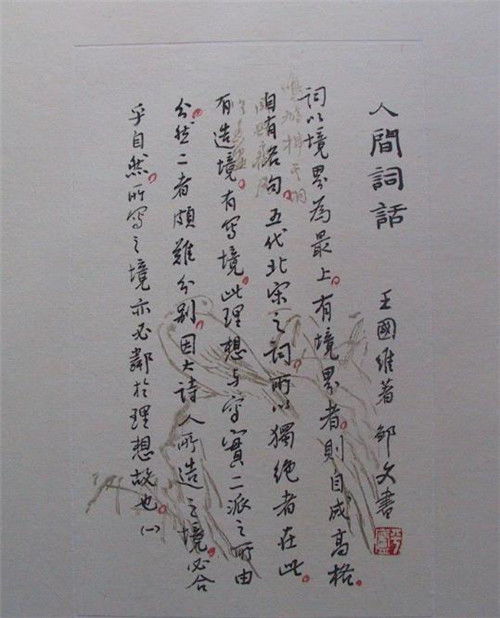 人間詞話 王國維著 邹文書
詞以境界為最上。有境界者。則自成高格。
自有名句。五代北宋之詞所以獨絕者在此。
有造境。有寫境。此理想与寫實二派之所由
分。然二者頗難分别。因大詩人所造之境。必合
乎自然。所寫之境亦必鄰於理想故也。(一)